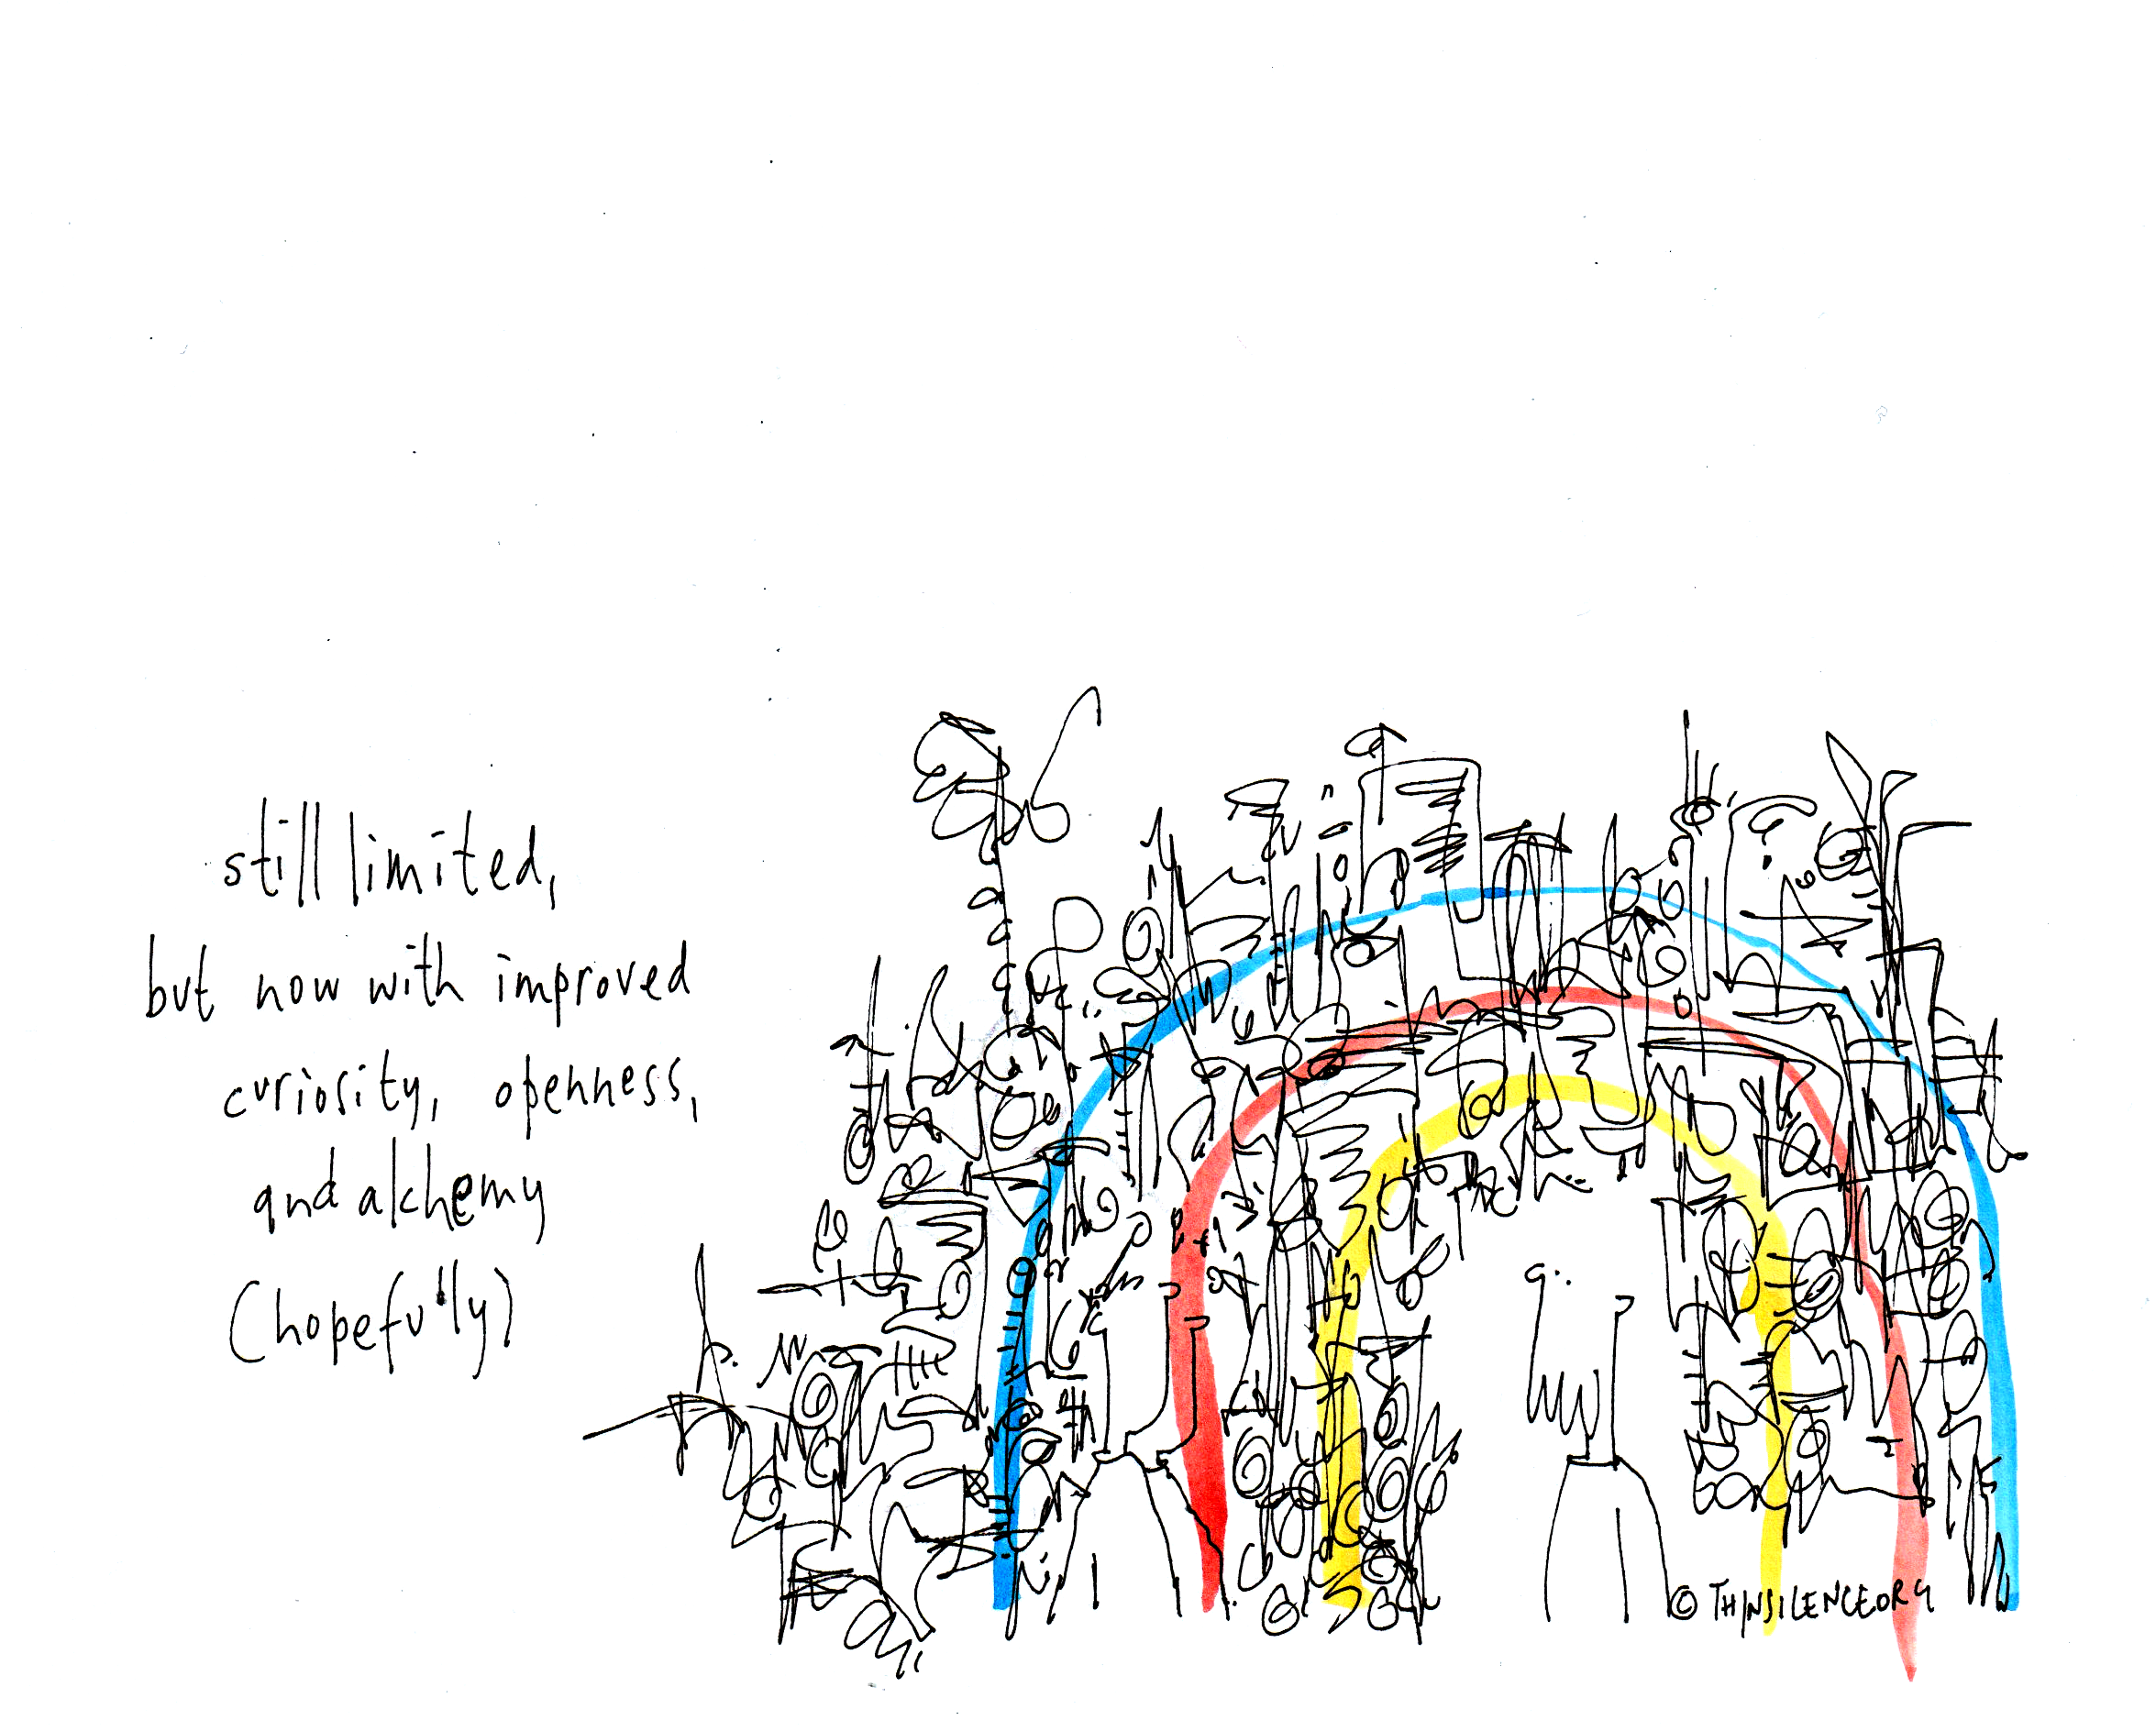 still limited,
but now with improved
curiosity, openness,
and alchemy
(hopefully)
© THINSILENCEORG